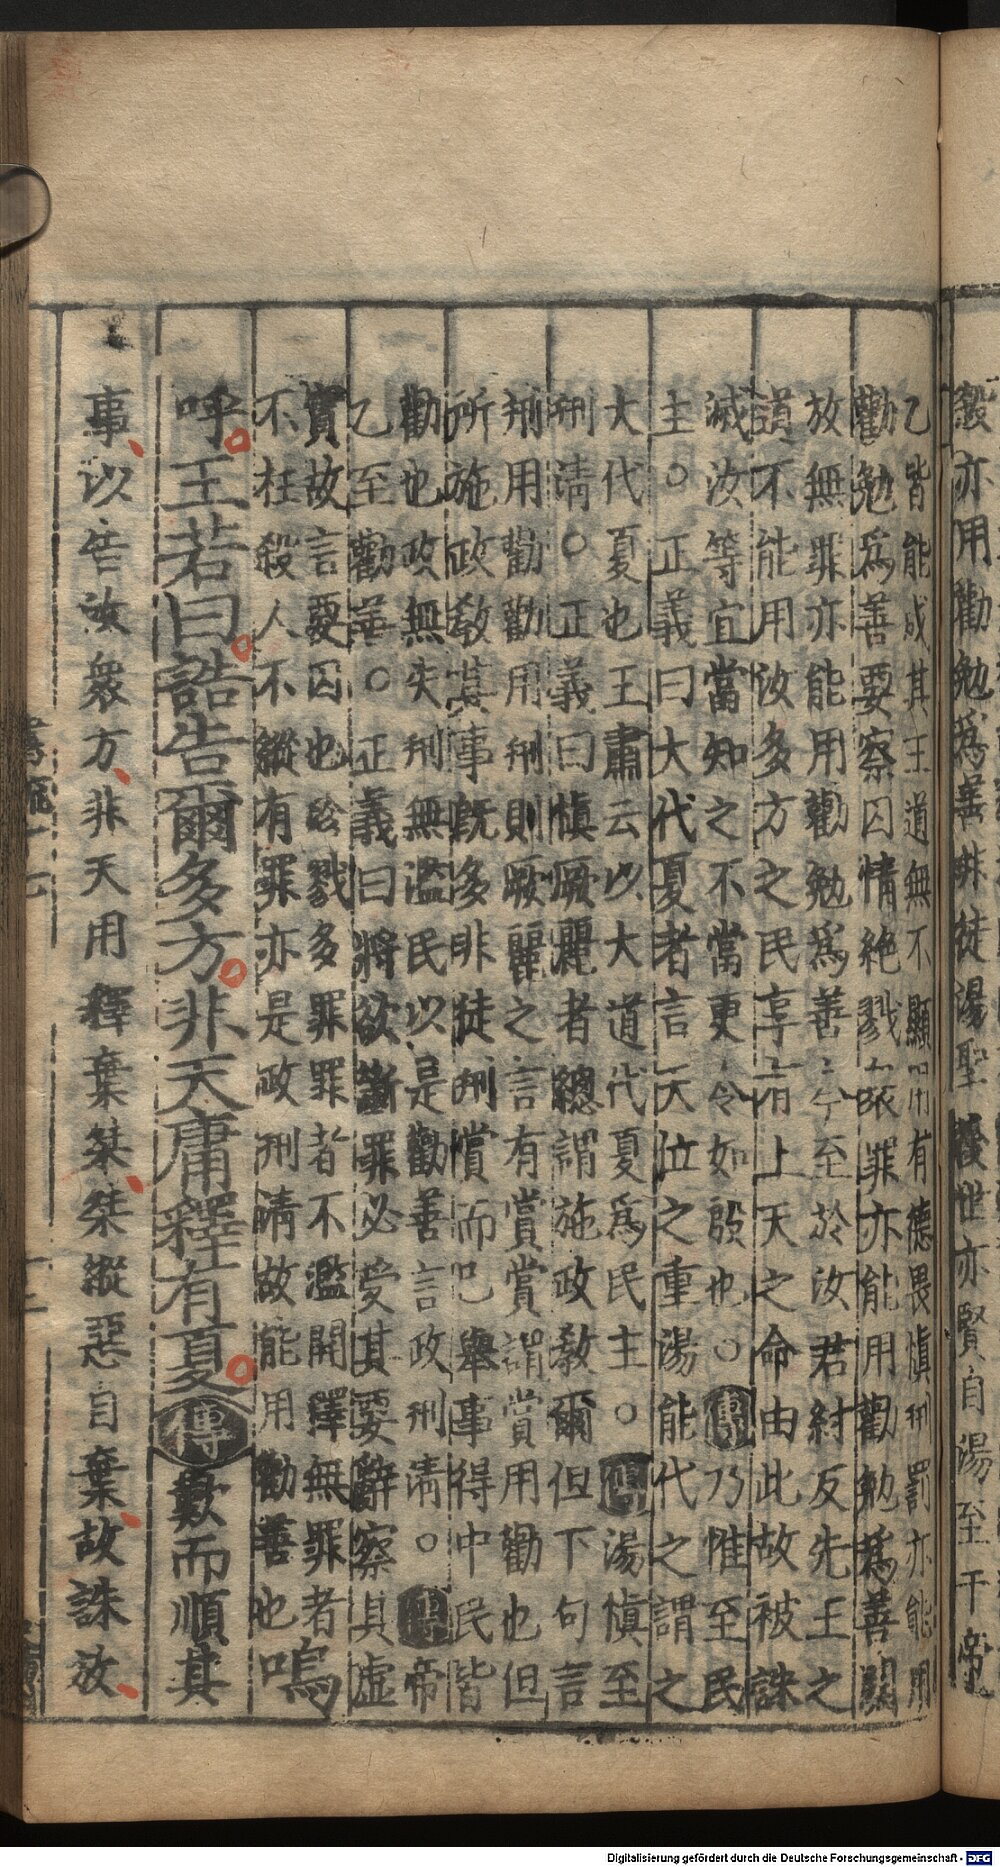 殷亦用勸勉爲善非徒湯聖後世亦賢自湯至于帝
乙皆能成其王道無不顯用有德畏慎刑罰亦能用
勸勉爲善要察囚情絶戮衆罪亦能用勸勉爲善開
放無罪亦能用勸勉爲善今至於汝君紂反先王之
道不能用汝多方之民享有上天之命由此故被誅
滅汝等宜當知之不當更令如殷也○傳乃惟至民
主○正義曰大代夏者言天位之重湯能代之謂之
大代夏也王肅云以大道代夏爲民主○傳湯慎至
刑清○正義曰慎厥麗者總謂施政敎爾但下句言
刑用勸勸用刑則厥麗之言有賞賞謂賞用勸也但
所施政敎其事旣多非徒刑賞而已舉事得中民皆
勸也政無失刑無濫民以是勸善言政刑清○傳帝
乙至勸善○正義曰將欲斷罪必受其要辭察其虛
實故言要囚也殄戮多罪罪者不濫開釋無罪者
不枉殺人不縱有罪亦是政刑清故能用勸善也嗚
呼王若曰誥告爾多方非天庸釋有夏傳歎而順其
事以告汝衆方非天用釋棄桀桀縱惡自棄故誅放
Digitalisierung gefördert durch die Deutsche Forschungsgemeinschaft - DFG